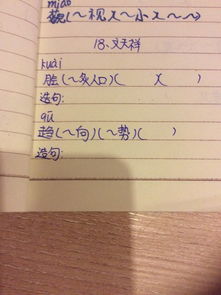 miǎo
藐(～视)(～小)(～～)
18、文天祥
kuài
脍(～炙人口)(　　)(　　)
造句:
qū
趋(～向)(～势)(　　)
造句: